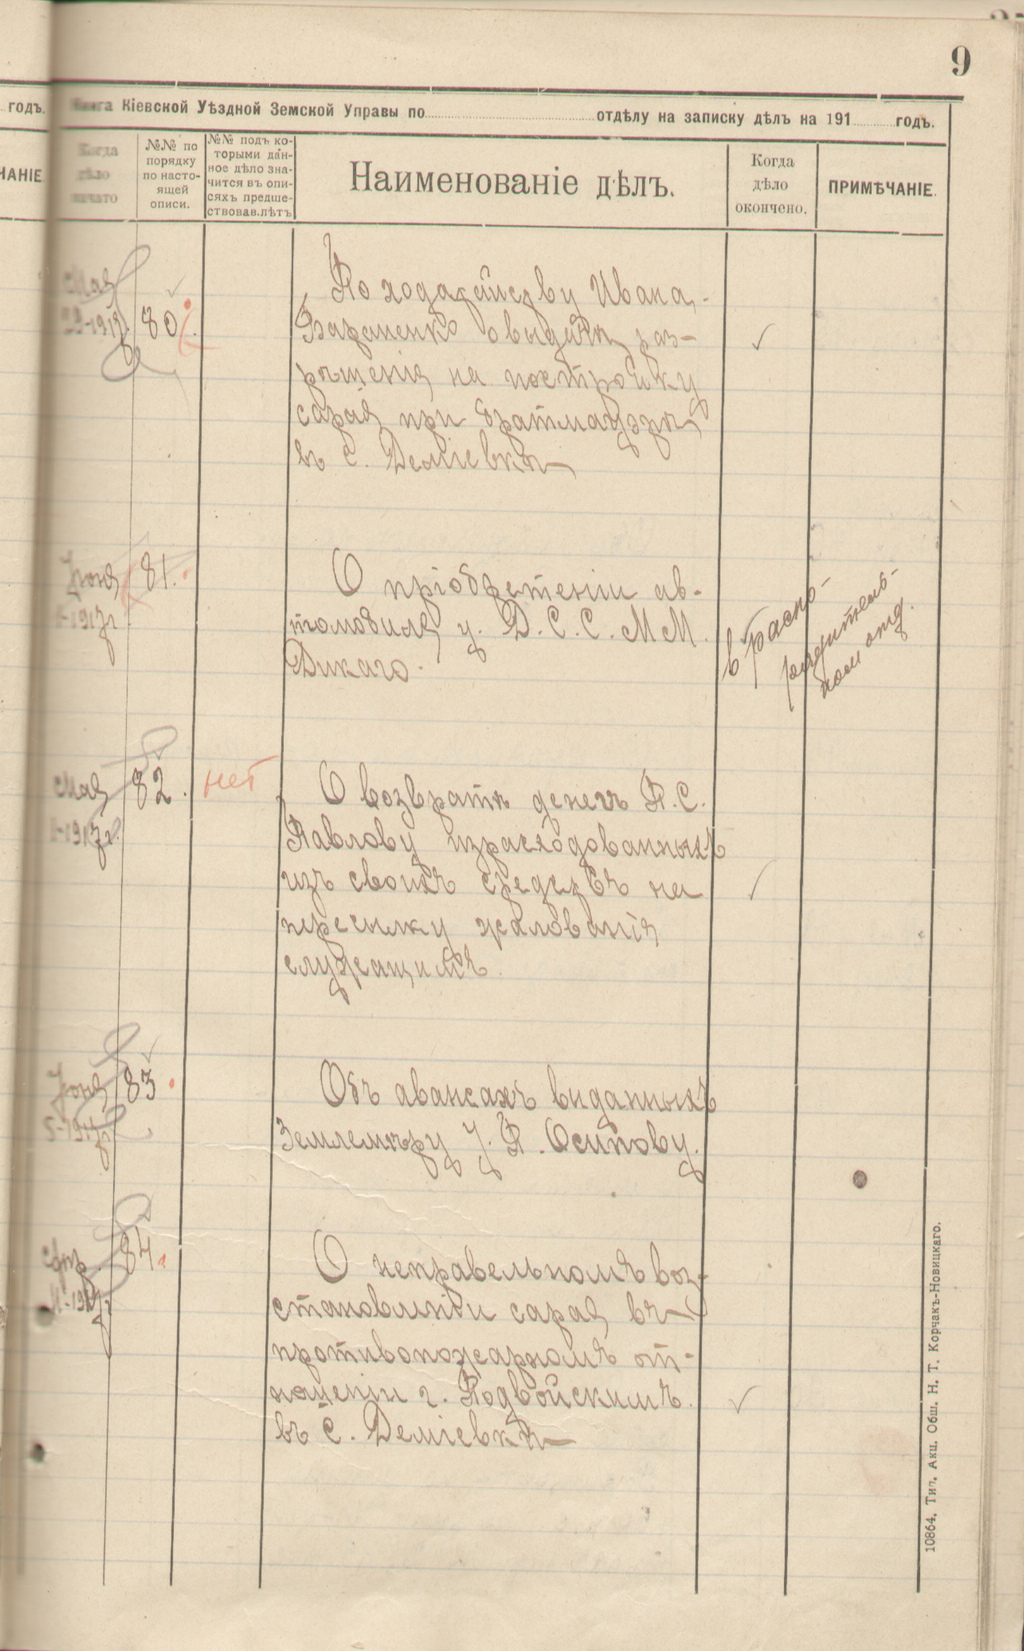 9
годъ.
Книга Кіевской Уѣздной Земской Управы по отдѣлу на записку дѣлъ на 191 годъ.
ЧАНІЕ
Когда
дѣло
начато
№№ по
порядку
по насто-
ящей
описи.
№№ подъ ко-
торыми дан-
ное дѣло зна-
чится въ опи-
сяхъ предше-
ствовав.лѣтъ
Наименованіе дѣлъ.
Когда
дѣло
окончено.
ПРИМѢЧАНІЕ.
Мая
1917г.
80
По ходатайству Ивана
о выдачѣ раз-
рѣшенія на постройку
сарая при
въ с. Деміевкѣ
Іюня
1917г
81.
О пріобрѣтеніи ав-
томобиля у. Д. С. С. М М.
Дикаго.
в Распо-
рядитель-
ном отд.
Мая
1917г.
82.
нет
О возвратѣ денегъ П. С.
Павлову израсходованныхъ
изъ своихъ средствъ на
пересылку жалованія
служащимъ.
Іюня
5-1917г
83
Объ авансахъ выданныхъ
Землемѣру У. П. Осипову.
84.
О неправельномъ воз-
становленіи сарая въ
противопожарномъ от-
ношеніи г. Подвойскимъ.
въ с. Деміевкѣ
10864. Тип. Акц. Общ. Н. Т. Корчакъ-Новицкаго.